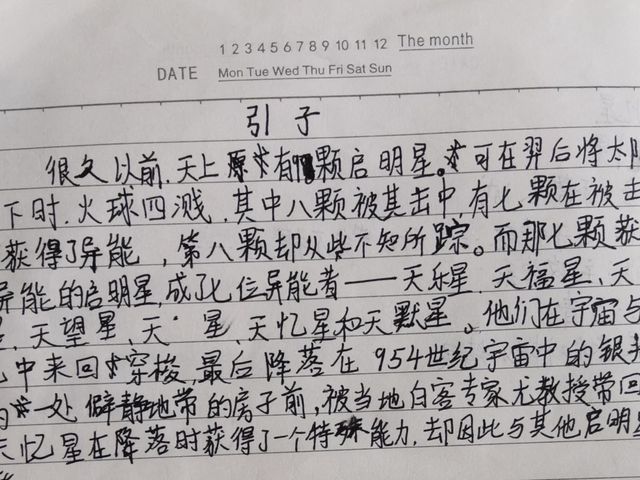 1 2 3 4 5 6 7 8 9 10 11 12 The month
DATE Mon Tue Wed Thu Fri Sat Sun
引子
很久以前,天上原有颗启明星。可在羿后将太
下时,火球四溅,其中八颗被其击中有七颗在被击
获得了异能,第八颗却从些不知所踪。而那七颗获
异能的启明星,成了七位异能者——天乐星,天福星、天
天望星、天 星、天忆星和天默星。他们在宇宙与
中来回穿梭,最后降落在954世纪宇宙中的银
一处僻静地带的房子前,被当地白客专家尤教授带回
忆星在降落时获得了一个特殊能力,却因此与其他启明